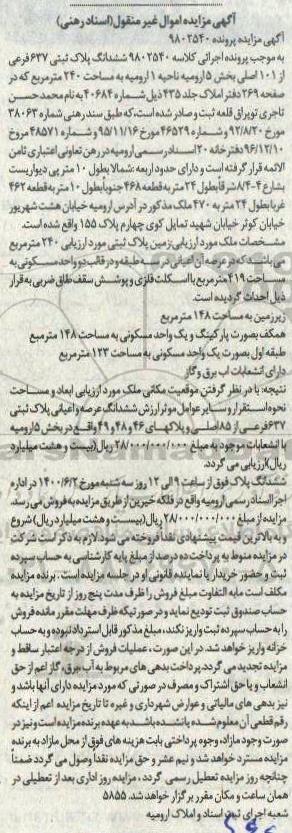 آگهی مزایده اموال غیر منقول(اسناد رهنی)
آگهی مزایده پرونده ۹۸۰۲۵۴۰
به موجب پرونده اجرائی کلاسه ۹۸۰۲۵۴۰ ششدانگ پلاک ثبتی ۶۳۷ فرعی
از ۱۰۱ اصلی بخش ۵ ارومیه ناحیه ۱ ارومیه به مساحت ۲۴۰ مترمربع که در
صفحه ۲۶۹ دفتر املاک جلد ۴۳۵ ذیل شماره ۴۰۶۸۴ به نام محمد حسن
تاجری توپراق قلعه ثبت و صادر شده است، که طبق سند رهنی شماره ۳۸۰۶۳
مورخ ۹۲/۸/۲۰ و شماره ۴۶۵۲۹ مورخ ۹۵/۱۱/۱۶ و شماره ۴۸۵۷۱ مروخ
۹۶/۱۲/۱۰ دفترخانه ۲۰ اسناد رسمی ارومیه در رهن تعاونی اعتباری ثامن
الائمه قرار گرفته است و دارای حدود اربعه :شمالا بطول ۱۰ متر پی دیواریست
بشارع ۸/۴۰-۴ شرقا بطول ۲۴ متر به قطعه ۴۶۸ جنوبا بطول ۱۰ متر به قطعه ۴۶۲
غربا بطول ۲۴ متر به ۴۷۰ ملک مذکور در آدرس ارومیه خیابان هشت شهریور
خیابان کوثر خیابان شهید تمایل کوی چهارم پلاک ۱۵۵ واقع شده است.
مشخصات ملک مورد ارزیابی زمین پلاک ثبتی مورد ارزیابی ۲۴۰ مترمربع
می باشد که در عرصه آن اعیانی در سه طبقه و در قالب دو واحد مسکونی به
مساحت ۴۱۹ مترمربع با اسکلت فلزی و پوشش سقف طاق ضربی به قرار
ذیل احداث گردیده است.
زیرزمین به مساحت ۱۴۸ مترمربع
همکف بصورت پارکینگ و یک واحد مسکونی به مساحت ۱۴۸ مترمبع
طبقه اول بصورت یک واحد مسکونی به مساحت ۱۲۳ مترمربع
دارای انشعابات اب برق و گاز
نتیجه: با در نظر گرفتن موقعیت مکانی ملک مورد ارزیابی ابعاد و مساحت
نحوه استقرار و سایر عوامل موثر ارزش ششدانگ عرصه و اعیانی پلاک ثبتی
۶۳۷ فرعی از اصلی و پلاکهای ۴۶ و ۴۸ و ۴۹ واقع در بخش ۵ ارومیه
با انشعابات موجود به مبلغ ۲۸/۰۰۰/۰۰۰/۰۰۰ ریال(بیست و هشت میلیارد
ریال)ارزیابی می گردد.
ششدانگ پلاک فوق از ساعت ۹ الی ۱۲ روز سه شنبه مورخ ۱۴۰۰/۶/۲ در اداره
اجرا اسناد رسمی ارومیه واقع در فلکه خیرین از طریق مزایده به فروش می رسد.
مزایده از مبلغ ۲۸/۰۰۰/۰۰۰/۰۰۰ ریال(بیست و هشت میلیارد ریال) شروع
و به بالاترین قیمت پیشنهادی نقدا فروخته می شود.لازم به ذکر است شرکت
در مزایده منوط به پرداخت ده درصد از مبلغ پایه کارشناسی به حساب سپرده
ثبت و حضور خریدار یا نماینده قانونی او در جلسه مزایده است. برنده مزایده
مکلف است مابه التفاوت مبلغ فروش را ظرف مدت پنج روز از تاریخ مزایده به
حساب صندوق ثبت تودیع نماید و در صورتیکه ظرف مهلت مقرر مانده فروش
را به حساب سپرده ثبت واریز نکند، مبلغ مذکور قابل استرداد نبوده و به حساب
خزانه واریز خواهد شد. در این صورت، عملیات فروش از درجه اعتبار ساقط و
مزایده تجدید می گردد.پرداخت بدهی های مربوط به آب،برق، گاز اعم از حق
انشعاب و یا حق اشتراک و مصرف در صورتی که مورد مزایده دارای آنها باشد و
نیز بدهی های مالیاتی و عوارض شهرداری و غیره تا تاریخ مزایده اعم از اینکه
رقم قطعی آن معلوم شده یا نشده باشد به عهده برنده مزایده است و نیز در
صورت وجود مازاد، وجوه پرداختی بابت هزینه های فوق از محل مازاد به برنده
مزایده مسترد خواهد شد و نیم عشر و حق مزایده نقدا وصول می گردد ضمناً
چنانچه روز مزایده تعطیل رسمی گردد ، مزایده روز اداری بعد از تعطیلی در
همان ساعت و مکان مقرر برگزار خواهد شد. ۵۸۵۵
شعبه اجرای ثبت اسناد و املاک ارومیه